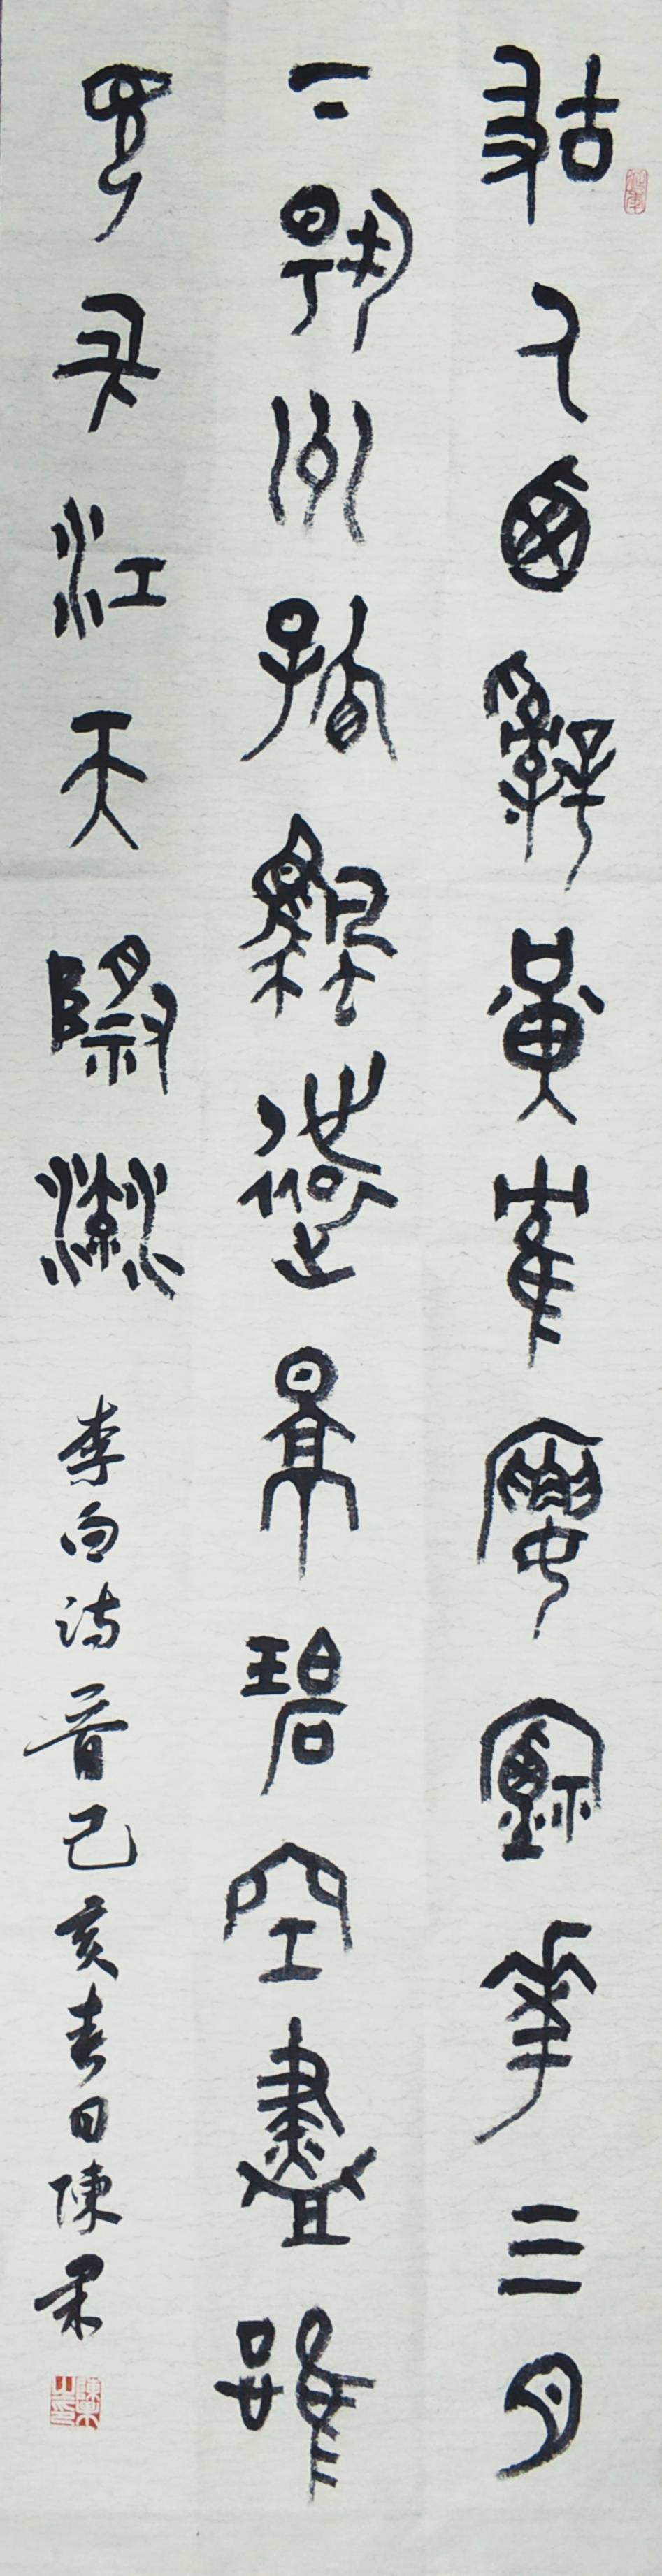 故人西辭黃鶴樓煙花三月
下揚州孤帆遠影碧空盡唯
見長江天際流 李白詩一首己亥春日陳